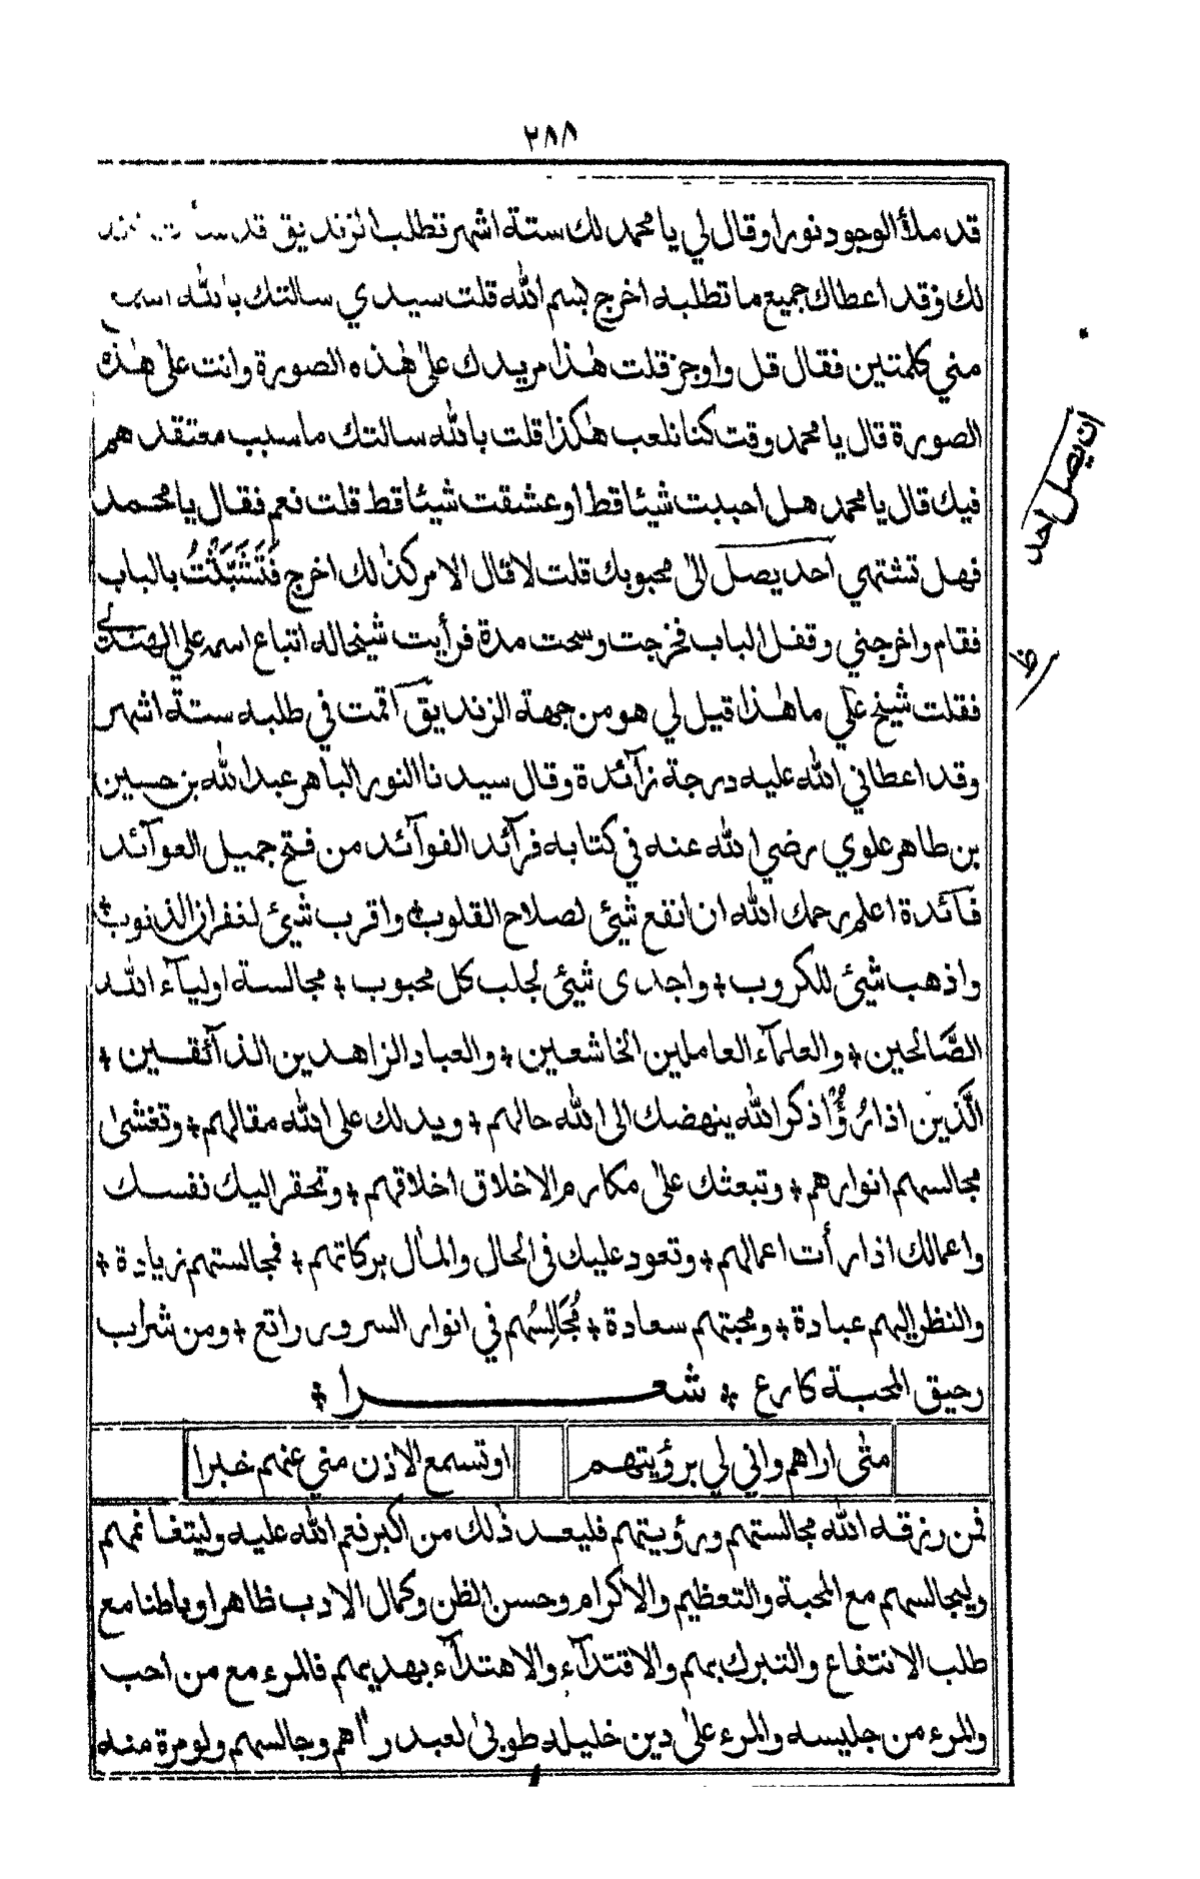 ٢٨٨
قد ملأ الوجود نورا وقال لي يا محمد لك ستة اشهر تطلب الزنديق قد
لك وقد اعطاك جميع ما تطلبه اخرج بسم الله قلت سيدي سالتك بالله اسمع
مني كلمتين فقال قل واوجز قلت هٰذا مريدك علىٰ هٰذه الصورة وانت علىٰ هٰذه
الصورة قال يا محمد وقت كنا نلعب هٰكذا قلت بالله سالتك ما سبب معتقدهم
فيك قال يا محمد هل احببت شيئا قط او عشقت شيئا قط قلت نعم فقال يا محمد
فهل تشتهي احد يصل الىٰ محبوبك قلت لا قال الامر كذٰلك اخرج فَتَشَبَّثْتُ بالباب
فقام واخرجني وقفل الباب فخرجت وسحت مدة فرأيت شيخا له اتباع اسمه علي الهندي
فقلت شيخ علي ما هٰذا قيل لي هو من جهة الزنديق اقمت في طلبه ستة اشهر
وقد اعطاني الله عليه درجة زآئدة وقال سيدنا النور الباهر عبد الله بن حسين
بن طاهر علوي رضي الله عنه في كتابه فرآئد الفوآئد من فتح جميل العوآئد
فآئدة اعلم رحمك الله ان انفع شيئ لصلاح القلوب + واقرب شيئ لغفران الذنوب +
واذهب شيئ للكروب + واجدى شيئ لجلب كل محبوب + مجالسة اوليآء الله
الصَّالحين + والعلمآء العاملين الخاشعين + والعباد الزاهدين الذآئقين +
الَّذين اذا رُؤُا ذكر الله ينهضك الى الله حالهم + ويدلك على الله مقالهم + وتغشىٰ
مجالسهم انوارهم + وتبعثك علىٰ مكارم الاخلاق اخلاقهم + وتحقر اليك نفسك
واعمالك اذا رأت اعمالهم + وتعود عليك في الحال والمآل بركاتهم + فمجالستهم زيادة +
والنظر اليهم عبادة + ومحبتهم سعادة + مُجَالِسُهم في انوار السرور راتع + ومن شراب
رحيق المحبة كارع + شعرا +
متٰى اراهم واني لي برؤيتهم او تسمع الاذن مني عنهم خبرا
فمن رزقه الله مجالستهم ورؤيتهم فليعد ذٰلك من اكبر نعم الله عليه وليتغانمهم
وليجالسهم مع المحبة والتعظيم والاكرام وحسن الظن وكمال الادب ظاهرا وباطنا مع
طلب الانتفاع والتبرك بهم والاقتدآء والاهتدآء بهديهم فالمرء مع من احب
والمرء من جليسه والمرء علىٰ دين خليله طوبىٰ لعبد رأهم وجالسهم ولو مرة منه
ان يصل احد
ظ